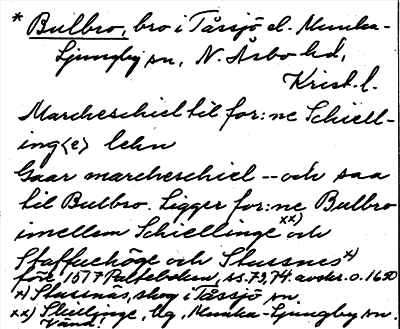 * Bulbro, bro i Tåssjö el. Munka-
Ljungby sn, N. Åsbo hd,
Krist. l.
Marcheschiel til for:ne Schiell-
ing<e> lehn
Gaar marcheschiel -- och saa
til Bulbro. Ligger for:ne Bulbro
imellem Schiellinge xx) och
Staffuehöge och Stassnes x)
före 1577 Palteboken, ss. 73, 74. avskr. o. 1650
x) Stassnäs, skog i Tåssjö sn.
xx) Skellinge, by, Munka-Ljungby sn.
Vänd!